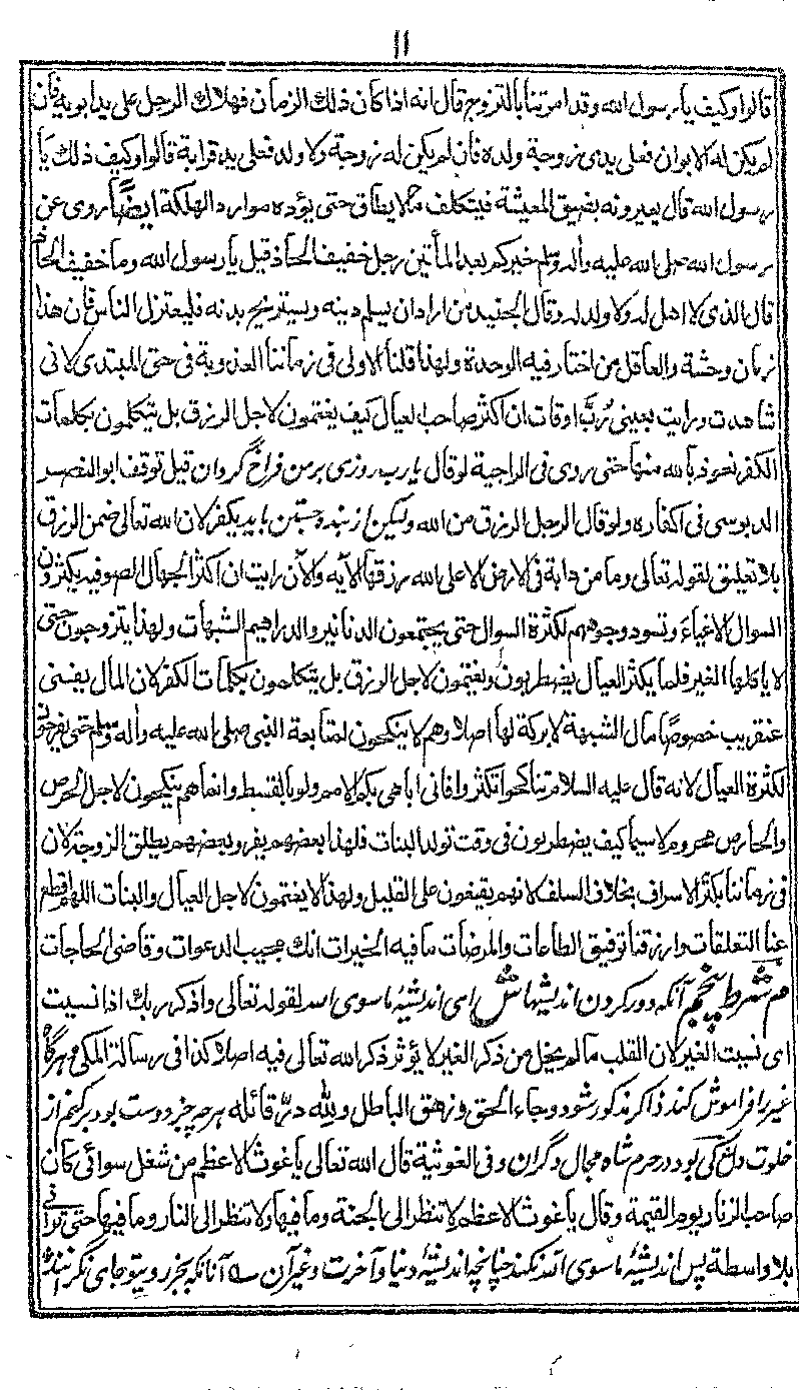 ۱۱
قالوا وكيف يا رسول الله وقد امرتنا بالتزوج قال انه اذا كان ذلك الزمان فهلاك الرجل على يد ابويه فان
لم يكن له الابوان فعلى يدى زوجة ولده فان لم يكن له زوجة ولا ولد فعلى يد قرابة قالوا وكيف ذلك يا
رسول الله قال يعيرونه بضيق المعيشة فيتكلف مالا يطاق حتى يؤده موارد الهلكة ايضًا روى عن
رسول الله صلى الله عليه وآله وسلم خيركم بعد المأتين رجل خفيف الحاذ قيل يا رسول الله وما خفيف الحاذ
قال الذى لا اهل له ولا ولد له وقال الجنيد من اراد ان يسلم دينه ويستريح بدنه فليعتزل الناس فان هذا
زمان وحشة والعاقل من اختار فيه الوحدة ولهذا قلنا الاولى فى زماننا العذوبة فى حق المبتدى لانى
شاهدت ورايت بعينى رُبَّ اوقات ان اكثر صاحب العيال كيف يغتمون لاجل الرزق بل يتكلمون بكلمات
الكفر نعوذ بالله منها حتى روى فى الراجية لو قال يارب روزى بر من فراخ گردان قيل توقف ابو النصر
الدبوسى فى اكفاره ولو قال الرجل الرزق من الله وليكن از بنده جستن بايد يكفر لان الله تعالى ضمن الرزق
بلا تعليق لقوله تعالى وما من دابة فى الارض الا على الله رزقها الآيه والآن رايت ان اكثر الجهال الصوفيه يكثرون
السوال الاغياء وتسود وجوههم لكثرة السوال حتى يجتمعون الدنانير والدراهيم الشبهات ولهذا يتزوجون حتى
لا ياكلها الغير فلما يكثر العيال يضطربون ويغتمون لاجل الرزق بل يتكلمون بكلمات الكفر لان المال يفنى
عنقريب خصوصًا مال الشبهة لا بركة لها اصلا وهم لا ينكحون لمتابعة النبى صلى الله عليه وآله وسلم حتى يفرحوا
لكثرة العيال لانه قال عليه السلام تناكحوا تكثروا فانى اباهى بكم الامم ولو بالقسط وانما هم ينكحون لاجل الحرص
والحارص محروم لا سيما كيف يضطربون فى وقت تولد البنات فلهذا بعضهم يفر وبعضهم يطلق الزوجة لان
فى زماننا يكثر الاسراف بخلاف السلف لانهم يقيفون على القليل ولهذا لا يغتمون لاجل العيال والبنات اللهم اقطع
عنا التعلقات وارزقنا توفيق الطاعات والمرضات ما فيه الخيرات انك مجيب الدعوات وقاضى الحاجات
م شرط پنجم آنكه دور كردن انديشها ش اى انديشۀ ما سوى الله لقوله تعالى واذكر ربك اذا نسيت
اى نسيت الغير لان القلب مالم يخل من ذكر الغير لا يؤثر ذكر الله تعالى فيه اصلا كذا فى رسالة المكى م هرگاه
غير را فراموش كند ذاكر مذكور شود وجاء الحق وزهق الباطل ولله درّ قائله هر چه جز دوست بود بركنم از
خلوت دل كى بود در حرم شاه مجال دگران وفى الغوثية قال الله تعالى يا غوث الاعظم من شغل سوائى كان
صاحب الزنار يوم القيمة وقال يا غوث الاعظم لا تنظر الى الجنة وما فيها ولا تنظر الى النار وما فيها حتى ترانى
بلا واسطة پس انديشۀ ما سوى الله نكند چنانچه انديشۀ دنيا وآخرت وغير آن آنانكه بجز روى تو جاى نگرانند